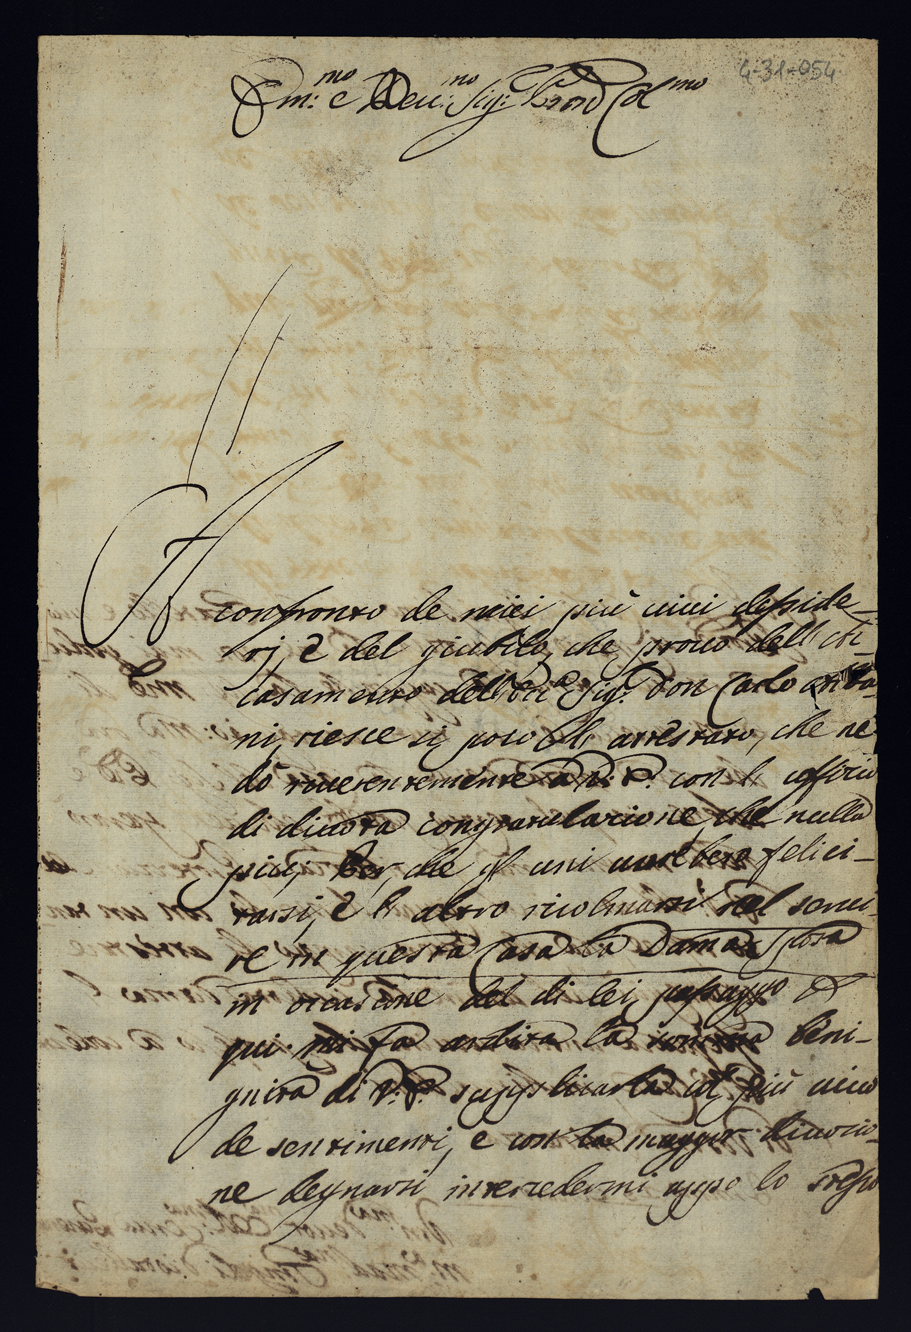 4-31-054
Em:mo e Rev:mo Sig:r Pron Colmo
Al confronto de miei più vivi desside=
rj, e del giubilo, che provo dell' ac=
casamento dell' Ecc.a Sig.r Don Carlo
ni, riesce si poco l' attestato, che ne
dò riverentemente a V: E. con l' officio
di divota congratulazione, che nulla
più, Per, che gl' uni felici=
tarsi, e l' altro ricolmarsi nel servi=
re in questa Casa la Dama Sposa
in occasione del di lei passaggio di
qui. mi fà ardita la somma beni=
gnità di V: E. supplicarla col più vivo
de sentimenti, e con la maggior divozio=
ne degnarsi intercedermi appo lo stesso